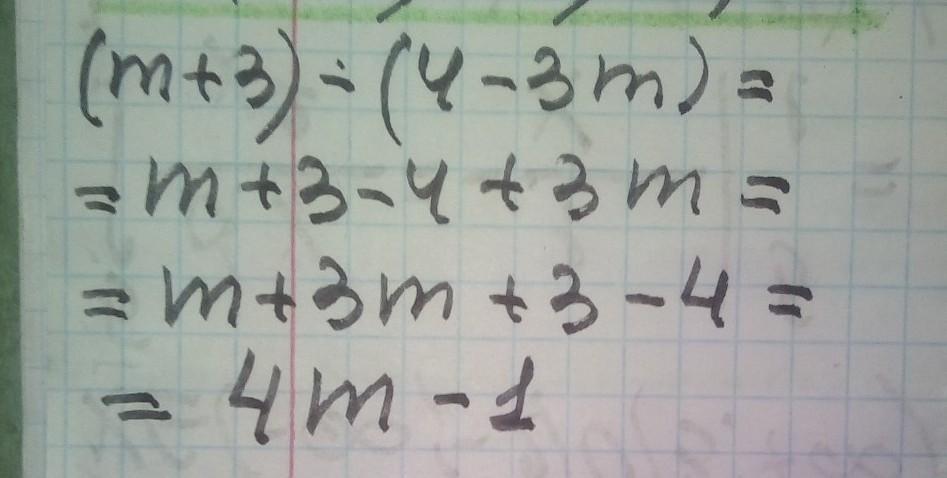 (m+3)÷(4-3m)=
=m+3-4+3m=
=m+3m+3-4=
=4m-1